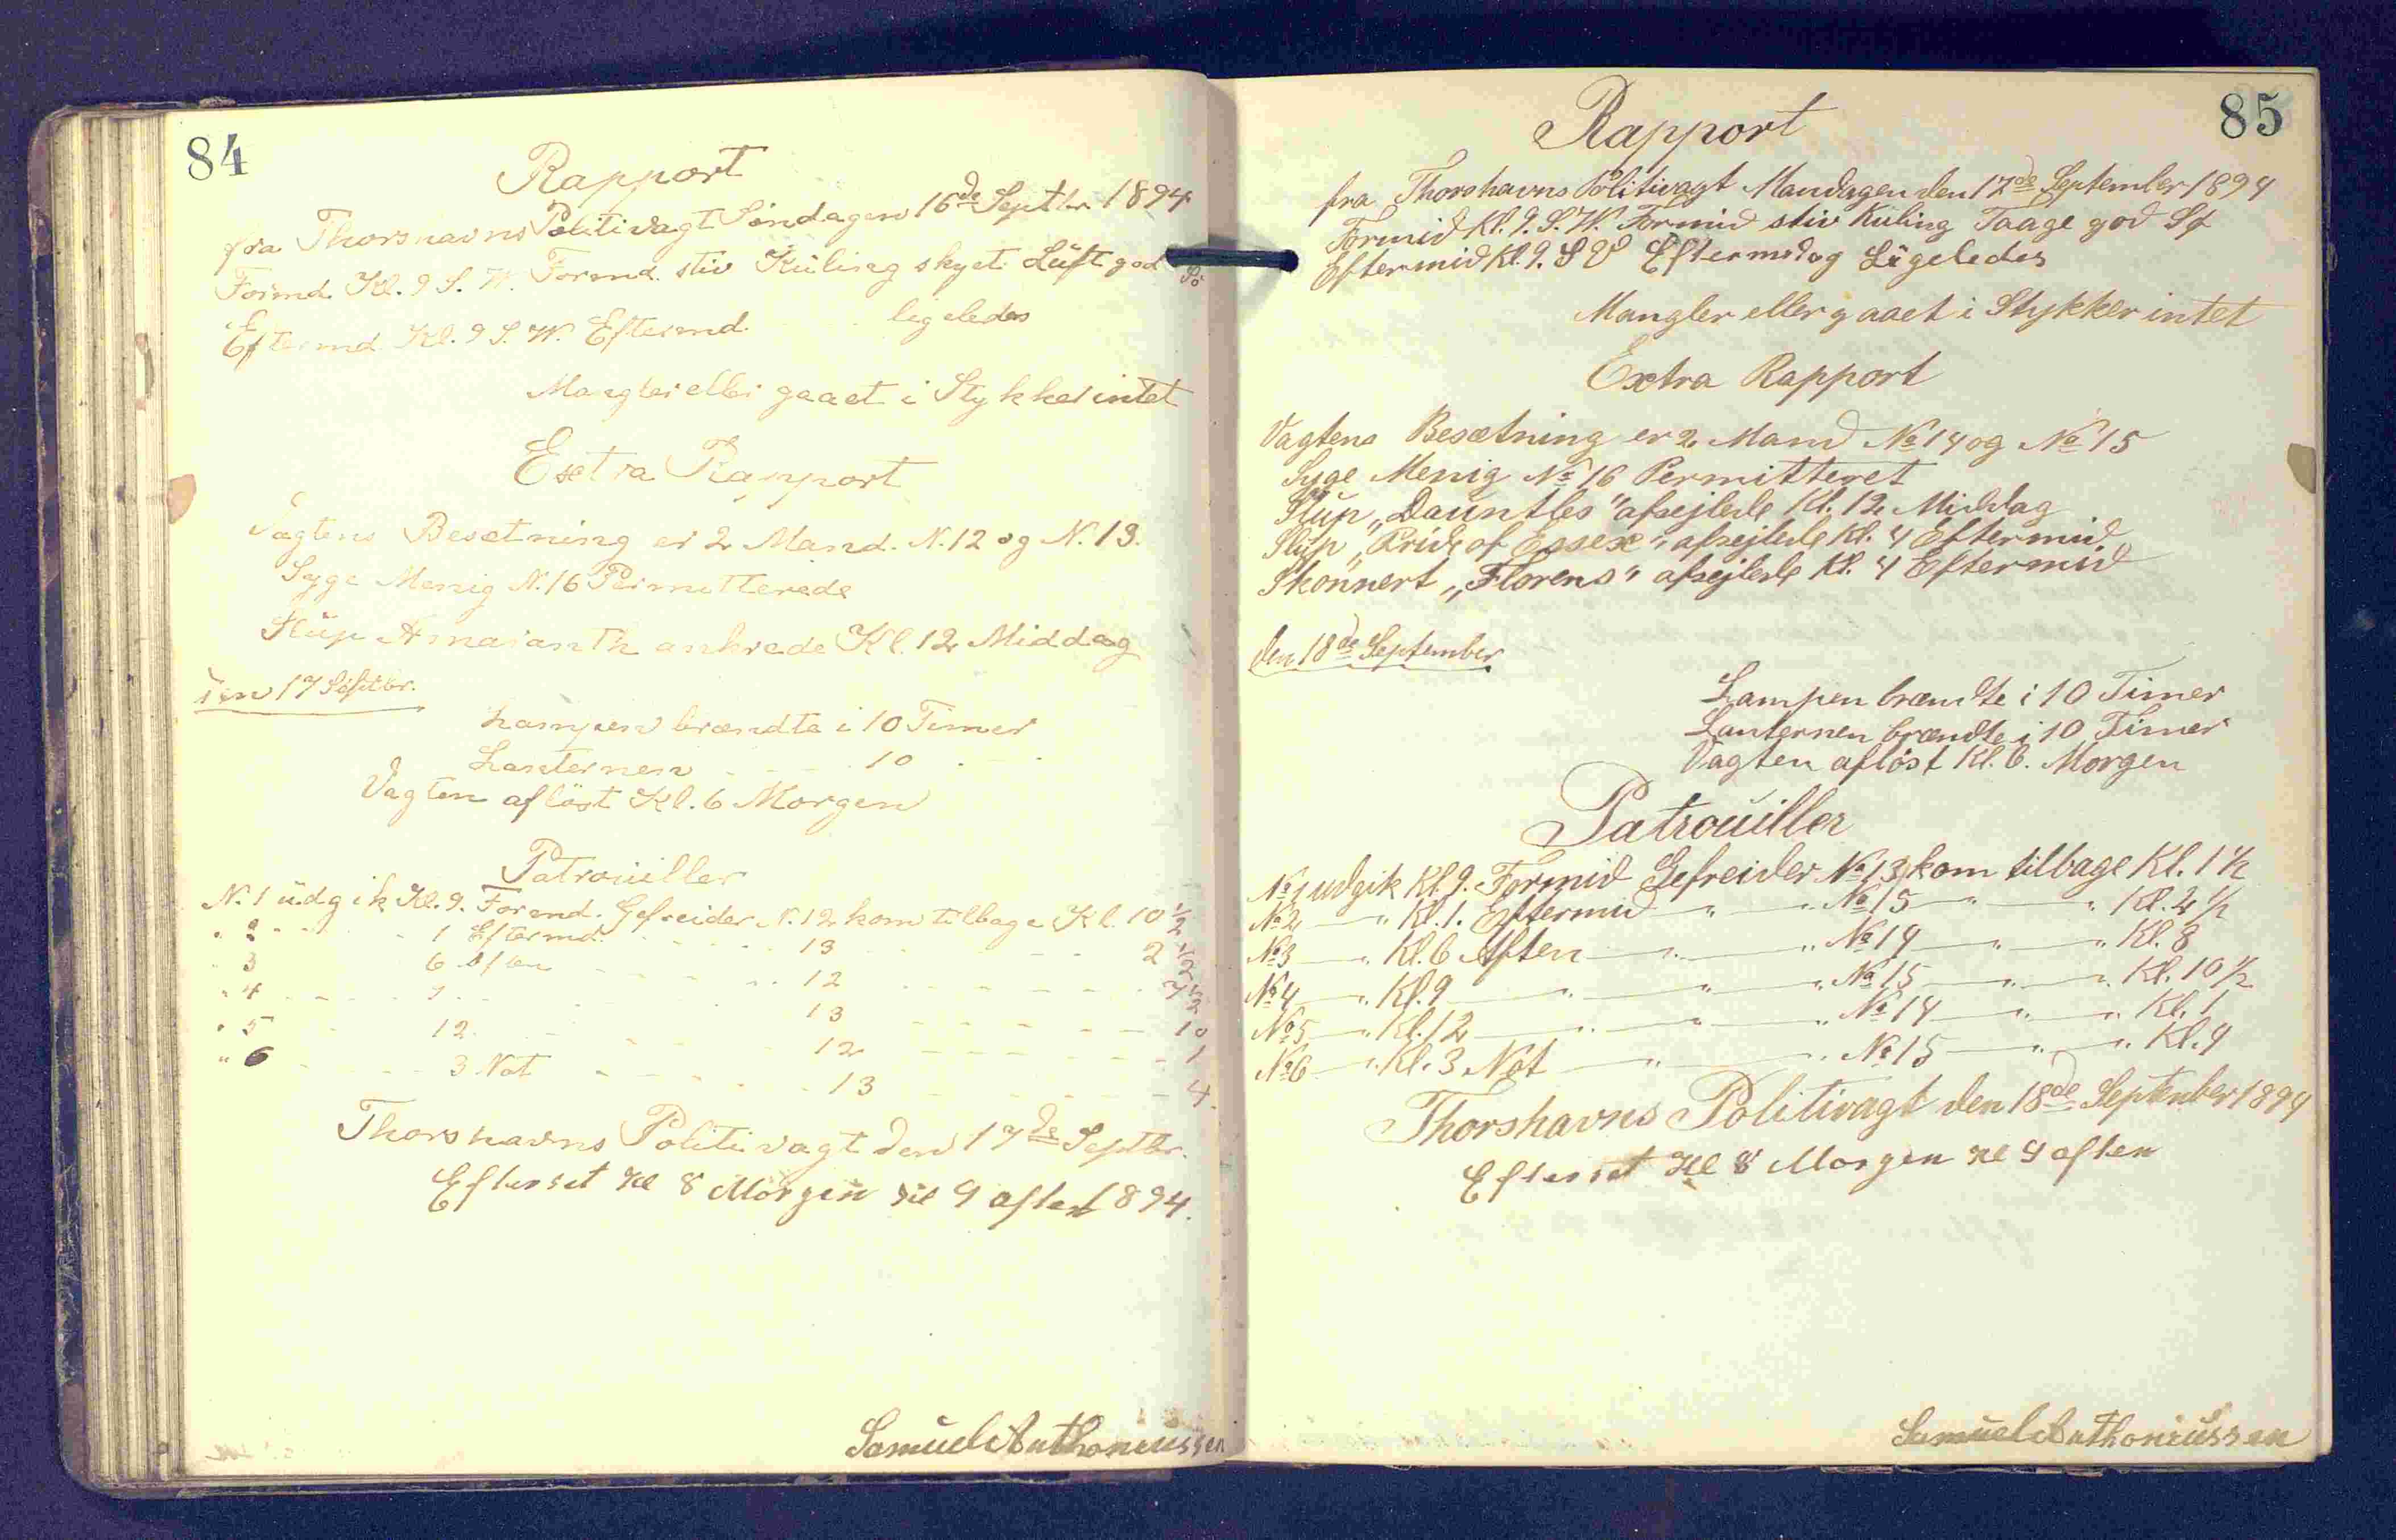 84
Rapport
fra Thorshavns Politivagt Söndagen 16de Septbr. 1894
Formd. Kl. 9 S. W. Formd. stiv Küling skyet Lüft god
Eftermd. Kl. 9 S. W. Eftermd. ligeledes
Mangler eller gaaet i Stykker intet
Extra Rapport
Vagtens Besætning er 2 Mand. N. 12 og N. 13.
Syge Menig N. 16 Permitterede
Slüp Amaranth ankrede Kl. 12 Middag
den 17 Septbr.
Lampen brændte i 10 Timer
Lanternen - - - 10 - -
Vagten aflöst Kl. 6 Morgen
Patrouiller
N. 1 üdgik Kl. 9. Formd. Gefreider N. 12 kom tilbage Kl. 10 1/2
" 2 - - - 1 Eftermd. - - - 13 - - - 2 1/2
" 3 6 Aften - - - 12 - - - 7 1/2
" 4 - - - 9 - - - 13 - - - 10
" 5 - 12. - - - 12 - - - 1
" 6 - - - 3 Nat - - - 13 - - - 4.
Thorshavns Politivagt den 17de Septbr.
Efterset Kl 8 Morgen Kl 9 aften 1894.
Samuel Anthoniussen
85
Rapport
fra Thorshavns Politivagt Mandagen den 17de September 1894
Formid Kl. 9. S. W. Formid stiv Kuling Taage god
Eftermid Kl. 9. S V Eftermidag Ligeledes
Mangler eller gaaet i Stykker intet
Extra Rapport
Vagtens Besætning er 2 Mand No 14 og No 15
Syge Menig No 16 Permitteret
Slup „Dauntles" afsejlede Kl. 12 Middag
Slup „Pride of Essex" afsejlede Kl. 4 Eftermid
Skonnert „Florens" afsejlede Kl. 4 Eftermid
den 18de September
Lampen brændte i 10 Timer
Lanternen brændte i 10 Timer
Vagten aflöst Kl. 6. Morgen
Patrouiller
No 1 udgik Kl. 9. Formid Gefreider No 13 kom tilbage Kl. 1 1/2
No 2 — " Kl. 1. Eftermid — " — " No 15 — " — " Kl. 2 1/2
No 3 — " Kl. 6 Aften — " — " No 14 — " — " Kl. 8
No 4 — " Kl. 9 — " — " — " No 15 — " — " Kl. 10 1/2
No 5 — " Kl. 12 — " — " — " No 14 — " — " Kl. 1
No 6 — " Kl. 3 Nat — " — " No 15 — " — " Kl. 4
Thorshavns Politivagt den 18de September 1894
Efterset Kl 8 Morgen Kl 9 aften
Samuel Anthoniussen